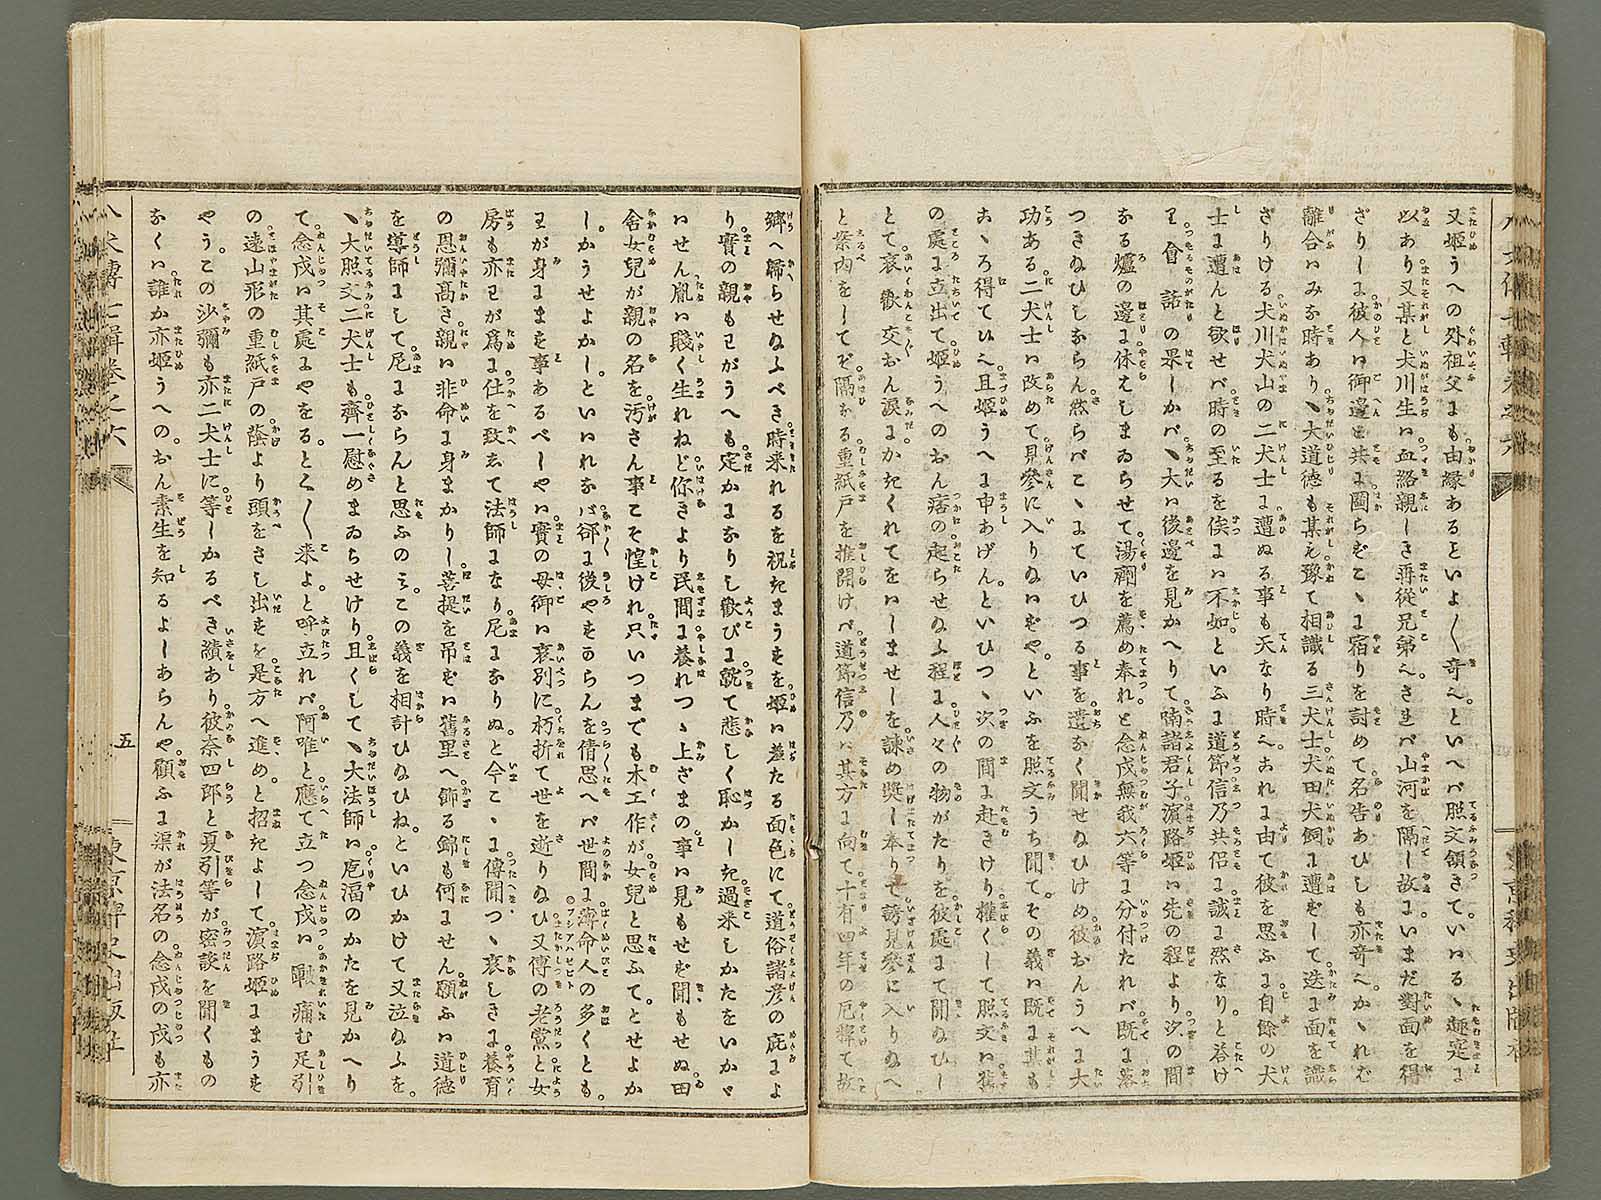 又姬うへの外祖父にも由縁あるをいよ〳〵奇へ。といへバ照文領きて。いハるゝ趣寔に
以あり又某と犬川生ハ血縁親しき再從兄弟へ。されバ山河を隔し故に。いまだ對面を得
ざりしに彼人ハ御邊と共に圖らずこゝに宿りを討めて名告あひしも亦奇へ。かゝれば
離合ハみな時あり。ヽ大道德も某も豫て相識る三犬士。犬田犬飼に遭ずして。迭に面を識
ざりける。犬川犬山の二犬士に遭ぬる事も天なり時へ。これに由て彼を思ふに自餘の犬
士に遭んと欲せバ。時の至るを俟にハ不如。といふに道節信乃共侶に誠に然なり。と答け
り。會話の果しかバ。ヽ大ハ後邊を見かへりて。喃諸君子濱路姬ハ先の程より次の間
なる爐の邊に休えしまゐらせて湯劑を薦め奉れ。と念戌無我六等に分付たれバ既に落
つき給ひしならん。然らバこゝにていひつる事を遺なく聞せ給ひけめ。彼おんうへに大
功ある二犬士ハ改めて見參に入り給ハずや。といふを照文うち聞て。その義ハ既に某も
こゝろ得てひへ。且姬うへに申あげん。といひつゝ次の間に赴きけり。權くして照文ハ舊
の處に立出て。姬うへのおん痞の起らせ給ふ程に。人々の物がたりを彼處にて聞給ひし
とて。哀歡交おん淚にかきくれてをハしませしを諫め奬し奉りぬ。誘見參に入り給へ
と案内をしてぞ。隔なる重紙戸を推開けバ。道節信乃ハ其方に向て。十有四年の厄釋て故
鄕へ歸らせ給ふべき時來れるを祝きまうすを。姬ハ羞たる面色にて。道俗諸彥の庇によ
り實の親もわがうへも定かになりし歡びに。就て悲しく恥かしき過來しかたをいかゞ
いせん。胤ハ賤く生れねど。你きより民間に養れつゝ上ざまの事ハ見もせず聞もせぬ。田
舎女兒が親の名を汚さん事こそ惶けれ。只いつまでも木工作が女兒と思ふて。とせよか
しかうせよかし。といハれなバ却に後やすからん。を倩思へバ世間に薄命人の多くとも。
わが身にます事あるべしや。實の母御ハ哀別に朽折て世を逝り給ひ。又傅の老黨と女
房も亦わが爲に仕を致ゑて法師になり。尼になりぬ。と今こゝに傳聞つゝ。哀しきに養育
の恩彌髙き親ハ非命に身まかりし。菩提を吊ずハ舊里へ飾る錦も何にせん。願ふハ道德
を導師にして。尼にならんと思ふのミ。この義を相計ひ給ひね。といひかけて又泣給ふを。
ヽ大照文二犬士も齊一慰めまゐらせけり。且くして。ヽ大法師ハ庖湢のかたを見かへり
て。念戌ハ其處にやをる。とく〳〵來よ。と呼立れバ阿唯と應て立つ念戌ハ。皸痛む足引
の遠山形の重紙戸の蔭より頭をさし出すを。是方へ進め。と招きよして。濱路姬にまうす
やう。この沙彌も亦二犬士に等しかるべき績あり。彼奈四郎と夏引等が密談を聞くもの
なくハ。誰か亦姬うへのおん素生を知るよしあらんや。顧ふに渠が法名の念戌の戌も亦
八犬傳七輯卷之六
五
東京稗史出版社